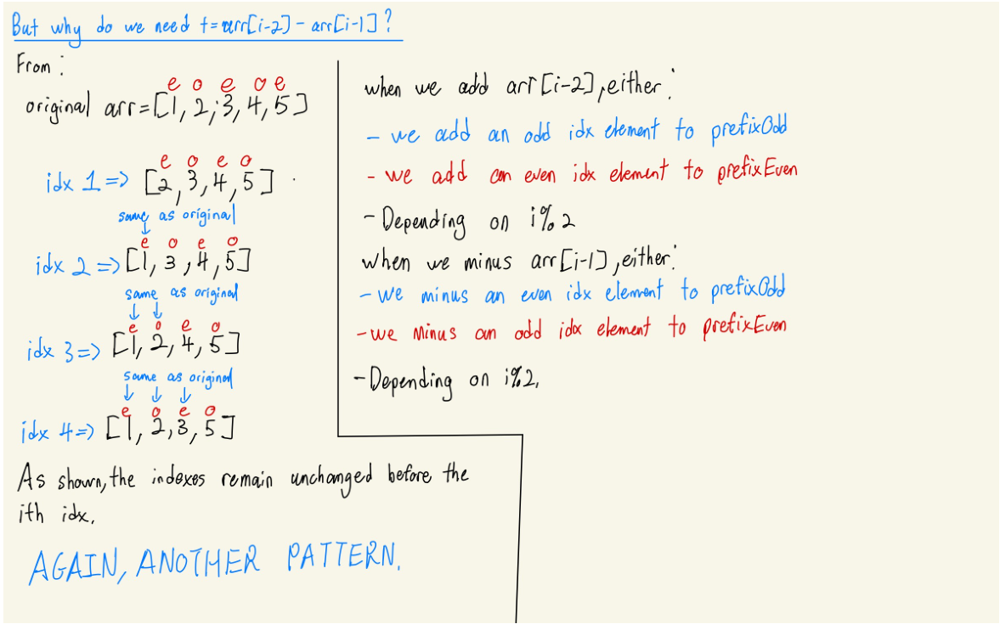 But why do we need t=arr[i-2]-arr[i-1]?
From:
e o e o e
original arr=[1, 2, 3, 4, 5]
e o e o
idx 1=> [2, 3, 4, 5]
same as original
e o e o
idx 2=> [1, 3, 4, 5]
same as original
e o e o
idx 3=> [1, 2, 4, 5]
same as original
e o e o
idx 4=> [1, 2, 3, 5]
As shown, the indexes remain unchanged before the
ith idx.
AGAIN, ANOTHER PATTERN.
when we add arr[i-2], either:
- we add an odd idx element to prefixOdd
- we add an even idx element to prefixEven
- Depending on i%2
when we minus arr[i-1], either:
- we minus an even idx element to prefixOdd
- we minus an odd idx element to prefixEven
- Depending on i%2.